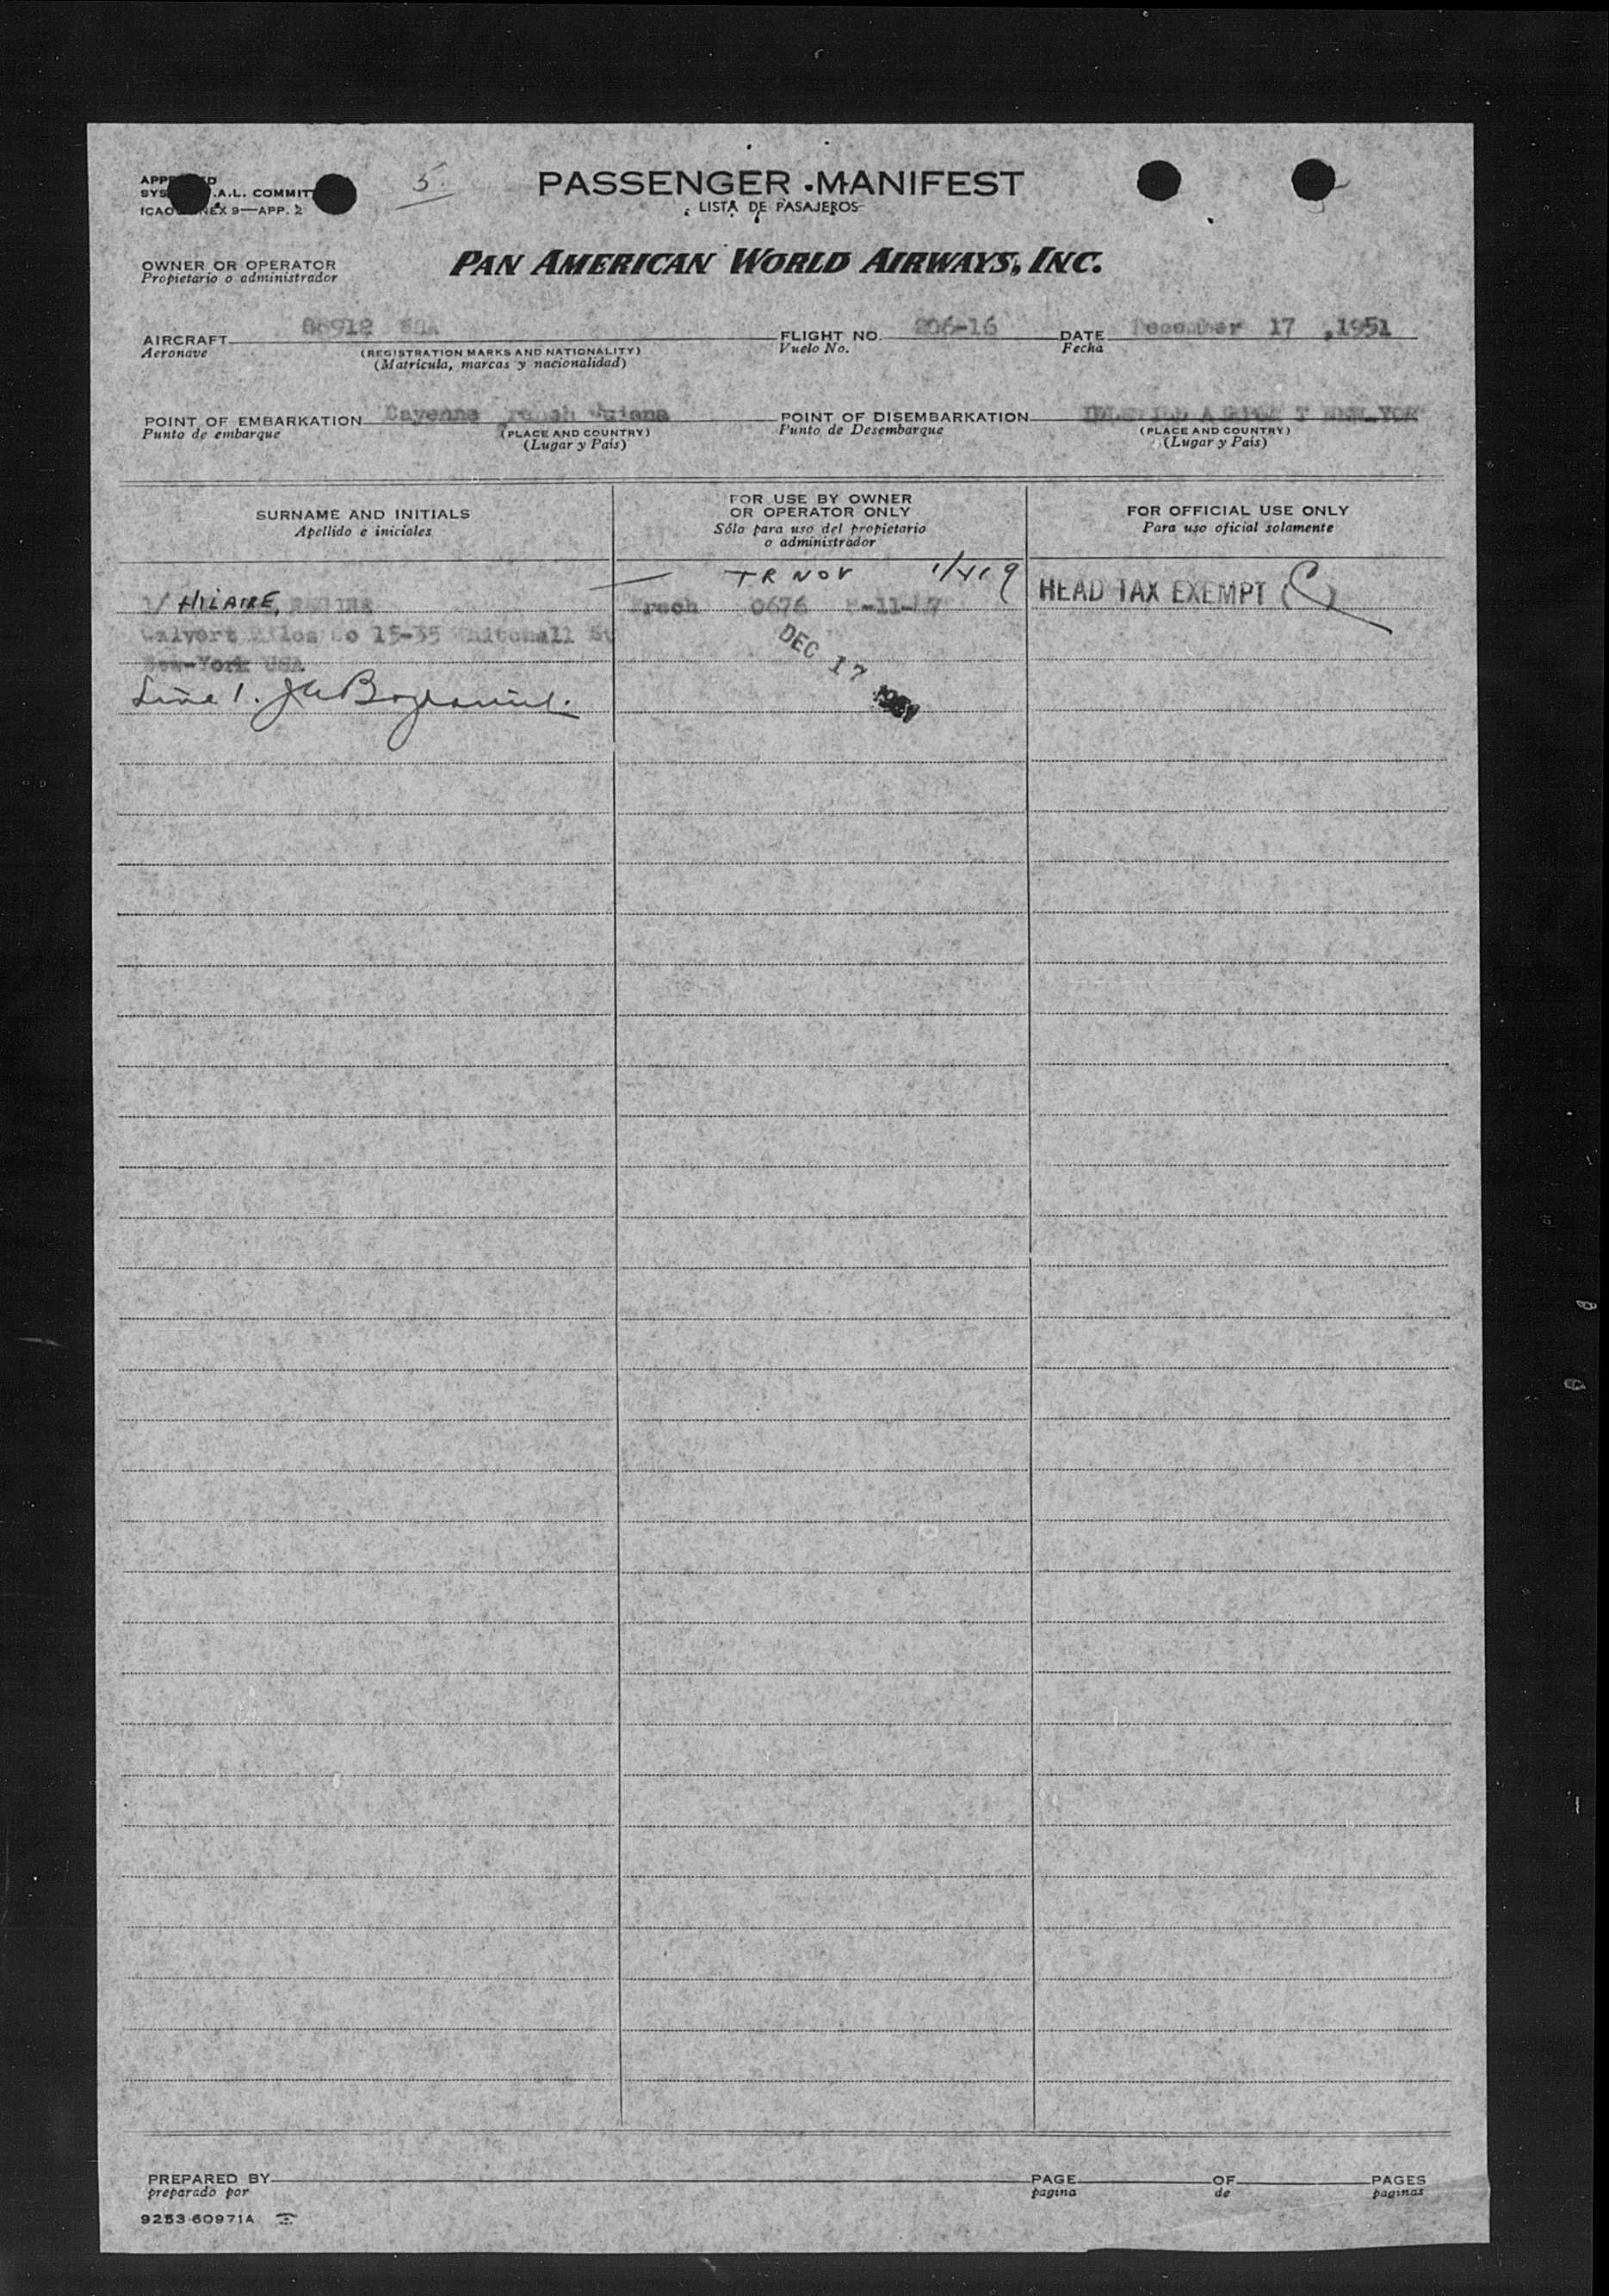 5.
PASSENGER MANIFEST
LISTA DE PASAJEROS
.A.L. COMMIT
ICAO NEX 9—APP. 2
OWNER OR OPERATOR
Propietario o administrador
PAN AMERICAN WORLD AIRWAYS, INC.
AIRCRAFT 88912 USA
Aeronave
(REGISTRATION MARKS AND NATIONALITY)
(Matrícula, marcas y nacionalidad)
FLIGHT NO. 206-16
Vuelo No.
DATE December 17 ,1951
Fecha
POINT OF EMBARKATION Cayenne
Punto de embarque
(PLACE AND COUNTRY)
(Lugar y País)
POINT OF DISEMBARKATION
Punto de Desembarque
(PLACE AND COUNTRY)
(Lugar y País)
SURNAME AND INITIALS
Apellido e iniciales
FOR USE BY OWNER
OR OPERATOR ONLY
Sólo para uso del propietario
o administrador
FOR OFFICIAL USE ONLY
Para uso oficial solamente
TR NOV
1/ HILAIRE,
0676
HEAD TAX EXEMPT
Calvert 15-35 St
New-York USA
DEC 17 1951
Line 1.
PREPARED BY
preparado por
PAGE OF PAGES
pagina de paginas
9253-60971A